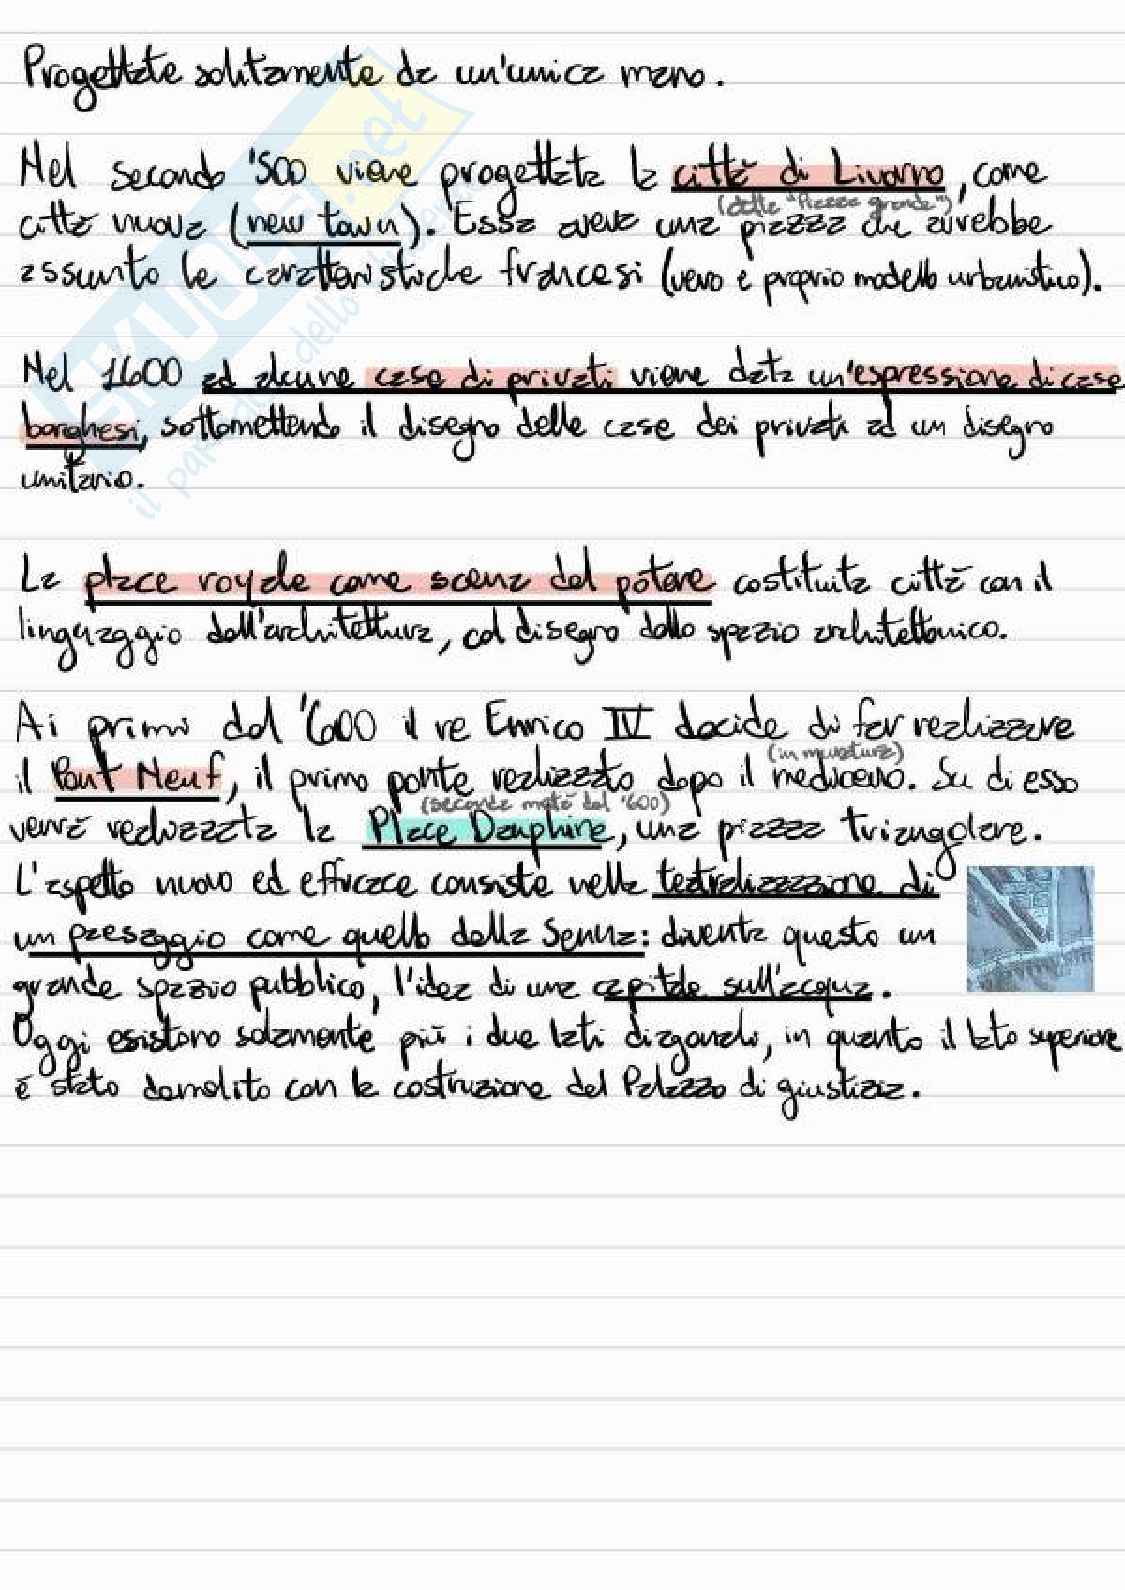 Progettate solitamente da un'unica mano.
Nel secondo '500 viene progettata la città di Livorno, come
(detta "Piazza grande")
città nuova (new town). Essa aveva una piazza che avrebbe
assunto le caratteristiche francesi (vero e proprio modello urbanistico).
Nel 1600 ad alcune case di privati viene data un'espressione di case
borghesi, sottomettendo il disegno delle case dei privati ad un disegno
unitario.
La place royale come scena del potere costituita città con il
linguaggio dell'architettura, col disegno dello spazio architettonico.
Ai primi del '600 il re Enrico IV decide di far realizzare
(in muratura)
il Pont Neuf, il primo ponte realizzato dopo il medioevo. Su di esso
(seconda metà del '600)
verrà realizzata la Place Dauphine, una piazza triangolare.
L'aspetto nuovo ed efficace consiste nella teatralizzazione di
un paesaggio come quello della Senna: diventa questo un
grande spazio pubblico, l'idea di una capitale sull'acqua.
Oggi esistono solamente più i due lati diagonali, in quanto il lato superiore
è stato demolito con la costruzione del Palazzo di giustizia.
SKUOLA.net
il paradiso dello studente